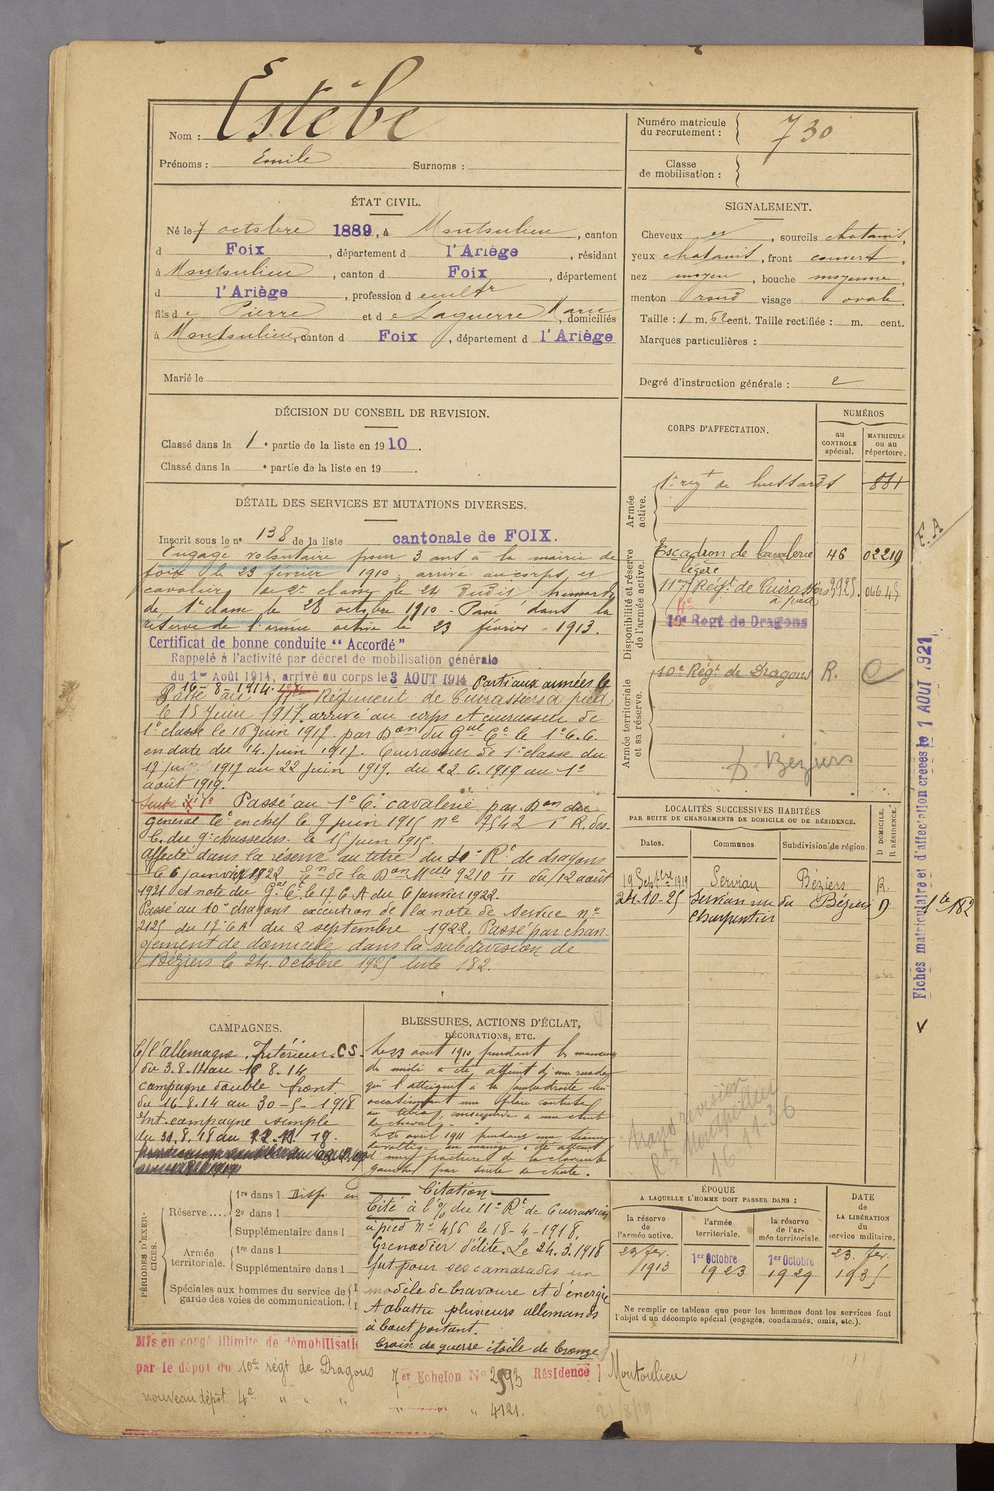 Nom : Estèbe
Prénoms : Emile Surnoms :
Numéro matricule du recrutement : 730
Classe de mobilisation :
ÉTAT CIVIL.
Né le 7 octobre 1889, à Montoulieu, canton
d Foix, département d l'Ariège, résidant
à Montoulieu, canton d Foix, département
d l'Ariège, profession d cultr
fils de Pierre et de Laguerre Marie, domiciliés
à Montoulieu, canton d Foix, département d l'Ariège
Marié le
SIGNALEMENT.
Cheveux et, sourcils chatains,
yeux chatains, front couvert,
nez moyen, bouche moyenne,
menton rond visage ovale.
Taille : 1 m. 62 cent. Taille rectifiée : m. cent.
Marques particulières :
Degré d'instruction générale : 2
DÉCISION DU CONSEIL DE REVISION.
Classé dans la 1e partie de la liste en 1910.
Classé dans la e partie de la liste en 19 .
DÉTAIL DES SERVICES ET MUTATIONS DIVERSES.
Inscrit sous le n° 138 de la liste cantonale de FOIX.
Engagé volontaire pour 3 ans à la mairie de
Foix le 23 février 1910, arrivé au corps et
cavalier de 2e classe le 24 dudit.
de 1e classe le 28 octobre 1910 - Passé dans la
réserve de l'armée active le 23 février 1913.
Certificat de bonne conduite "Accordé"
Rappelé à l'activité par décret de mobilisation générale
du 1er Août 1914, arrivé au corps le 3 AOUT 1914 Parti aux armées le
16-8-1914.
Passé au Régiment de Cuirassiers à pied
le 15 Juin 1917, arrivé au corps et cuirassier de
1e classe le 10 juin 1917 par Don du Gal Ct le 1e C.C.
en date du 14 Juin 1917. Cuirassier de 1e classe du
17 juin 1917 au 22 juin 1919. du 22.6.1919 au 1e
août 1919.
Passé au 1e Ct cavalerie par Don du
général Ct en chef le 9 juin 1915 No 9542 R. des
C. du 9e chasseurs. le 15 juin 1915.
affecté dans la réserve au titre du 10e Rt de dragons
le 6 janvier 1922 En de la Don Mlle 9210 II du 12 août
1921 et note du Gal Ct le 17 C.A du 6 janvier 1922.
Passé au 10e dragons exécution de la note de service no
2125 du 17e CA du 2 septembre 1922. Passé par chan
gement de domicile dans la subdivision de
Béziers le 24 Octobre 1925 liste 182.
CORPS D'AFFECTATION.
NUMÉROS
au CONTRÔLE spécial.
MATRICULE ou au répertoire.
Armée active.
1e régt de hussards 881
Disponibilité et réserve de l'armée active.
Escadron de Cavalerie légère 46 02219
11e Régt de Cuirassiers à pied
10e Regt de Dragons
Armée territoriale et sa réserve.
10e Régt de Dragons R.
Béziers
LOCALITÉS SUCCESSIVES HABITÉES
PAR SUITE DE CHANGEMENTS DE DOMICILE OU DE RÉSIDENCE.
Dates. Communes. Subdivision de région. D DOMICILE. R RÉSIDENCE.
19 Septbre 1919 Servian Béziers R.
24-10-25 Servian rue du Charpentier Béziers D
Fiches matriculaire et d'affectation créées le 1 AOUT 1921
F.A
lte 182
CAMPAGNES.
C/ l'allemagne. Intérieur. CS.
campagne double front
du 16-8-14 au 30-5-1918
Int. campagne simple
BLESSURES, ACTIONS D'ÉCLAT,
DÉCORATIONS, ETC.
Le 23 aout 1910, pendant les manœuvres
du midi a été atteint d'une ruade
qui l'atteignit à la jambe droite lui
occasionnant une plaie contuse
Le 25 avril 1911 pendant une séance
de voltige au manège, a été atteint
d'une fracture de la clavicule
gauche par suite de chute.
Citation
Cité à l'O/ du 11e Rt de Cuirassiers
à pied No 456 le 18-4-1918.
Grenadier d'élite. Le 24.3.1918
fut pour ses camarades un
modèle de bravoure et d'énergie
A abattu plusieurs allemands
à bout portant.
Croix de guerre étoile de bronze
Rt Montpellier
PÉRIODES D'EXERCICES.
Réserve.... 1re dans l
2e dans l
Supplémentaire dans l
Armée territoriale. 1re dans l
Supplémentaire dans l
Spéciales aux hommes du service de garde des voies de communication.
ÉPOQUE
A LAQUELLE L'HOMME DOIT PASSER DANS :
la réserve de l'armée active. l'armée territoriale. la réserve de l'armée territoriale.
DATE DE LA LIBÉRATION du service militaire.
23 fev. 1913 1er Octobre 1923 1er Octobre 1929 23 fev. 1935
Ne remplir ce tableau que pour les hommes dont les services font
l'objet d'un décompte spécial (engagés, condamnés, omis, etc.).
Mis en congé illimité de démobilisati
par le dépôt du 10e régt de Dragons 7er Echelon No 2593 Résidence Montoulieu
nouveau dépôt 4e " " " " 4121.